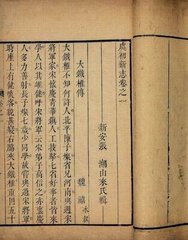 虞初新志卷之一
新安張 潮山來氏輯
大鐵椎傳
魏 禧 冰叔
大鐵椎不知何許人北平陳子燦省兄河南與遇宋
將軍家宋懷慶青華鎮人工技擊七省好事者皆來
學人以其雄健呼宋將軍云宋弟子高信之亦懷慶
人多力善射長子燦七歲少同學故嘗與過宋將軍
時座上有健啖客貌甚寢右脅夾大鐵椎重四五十